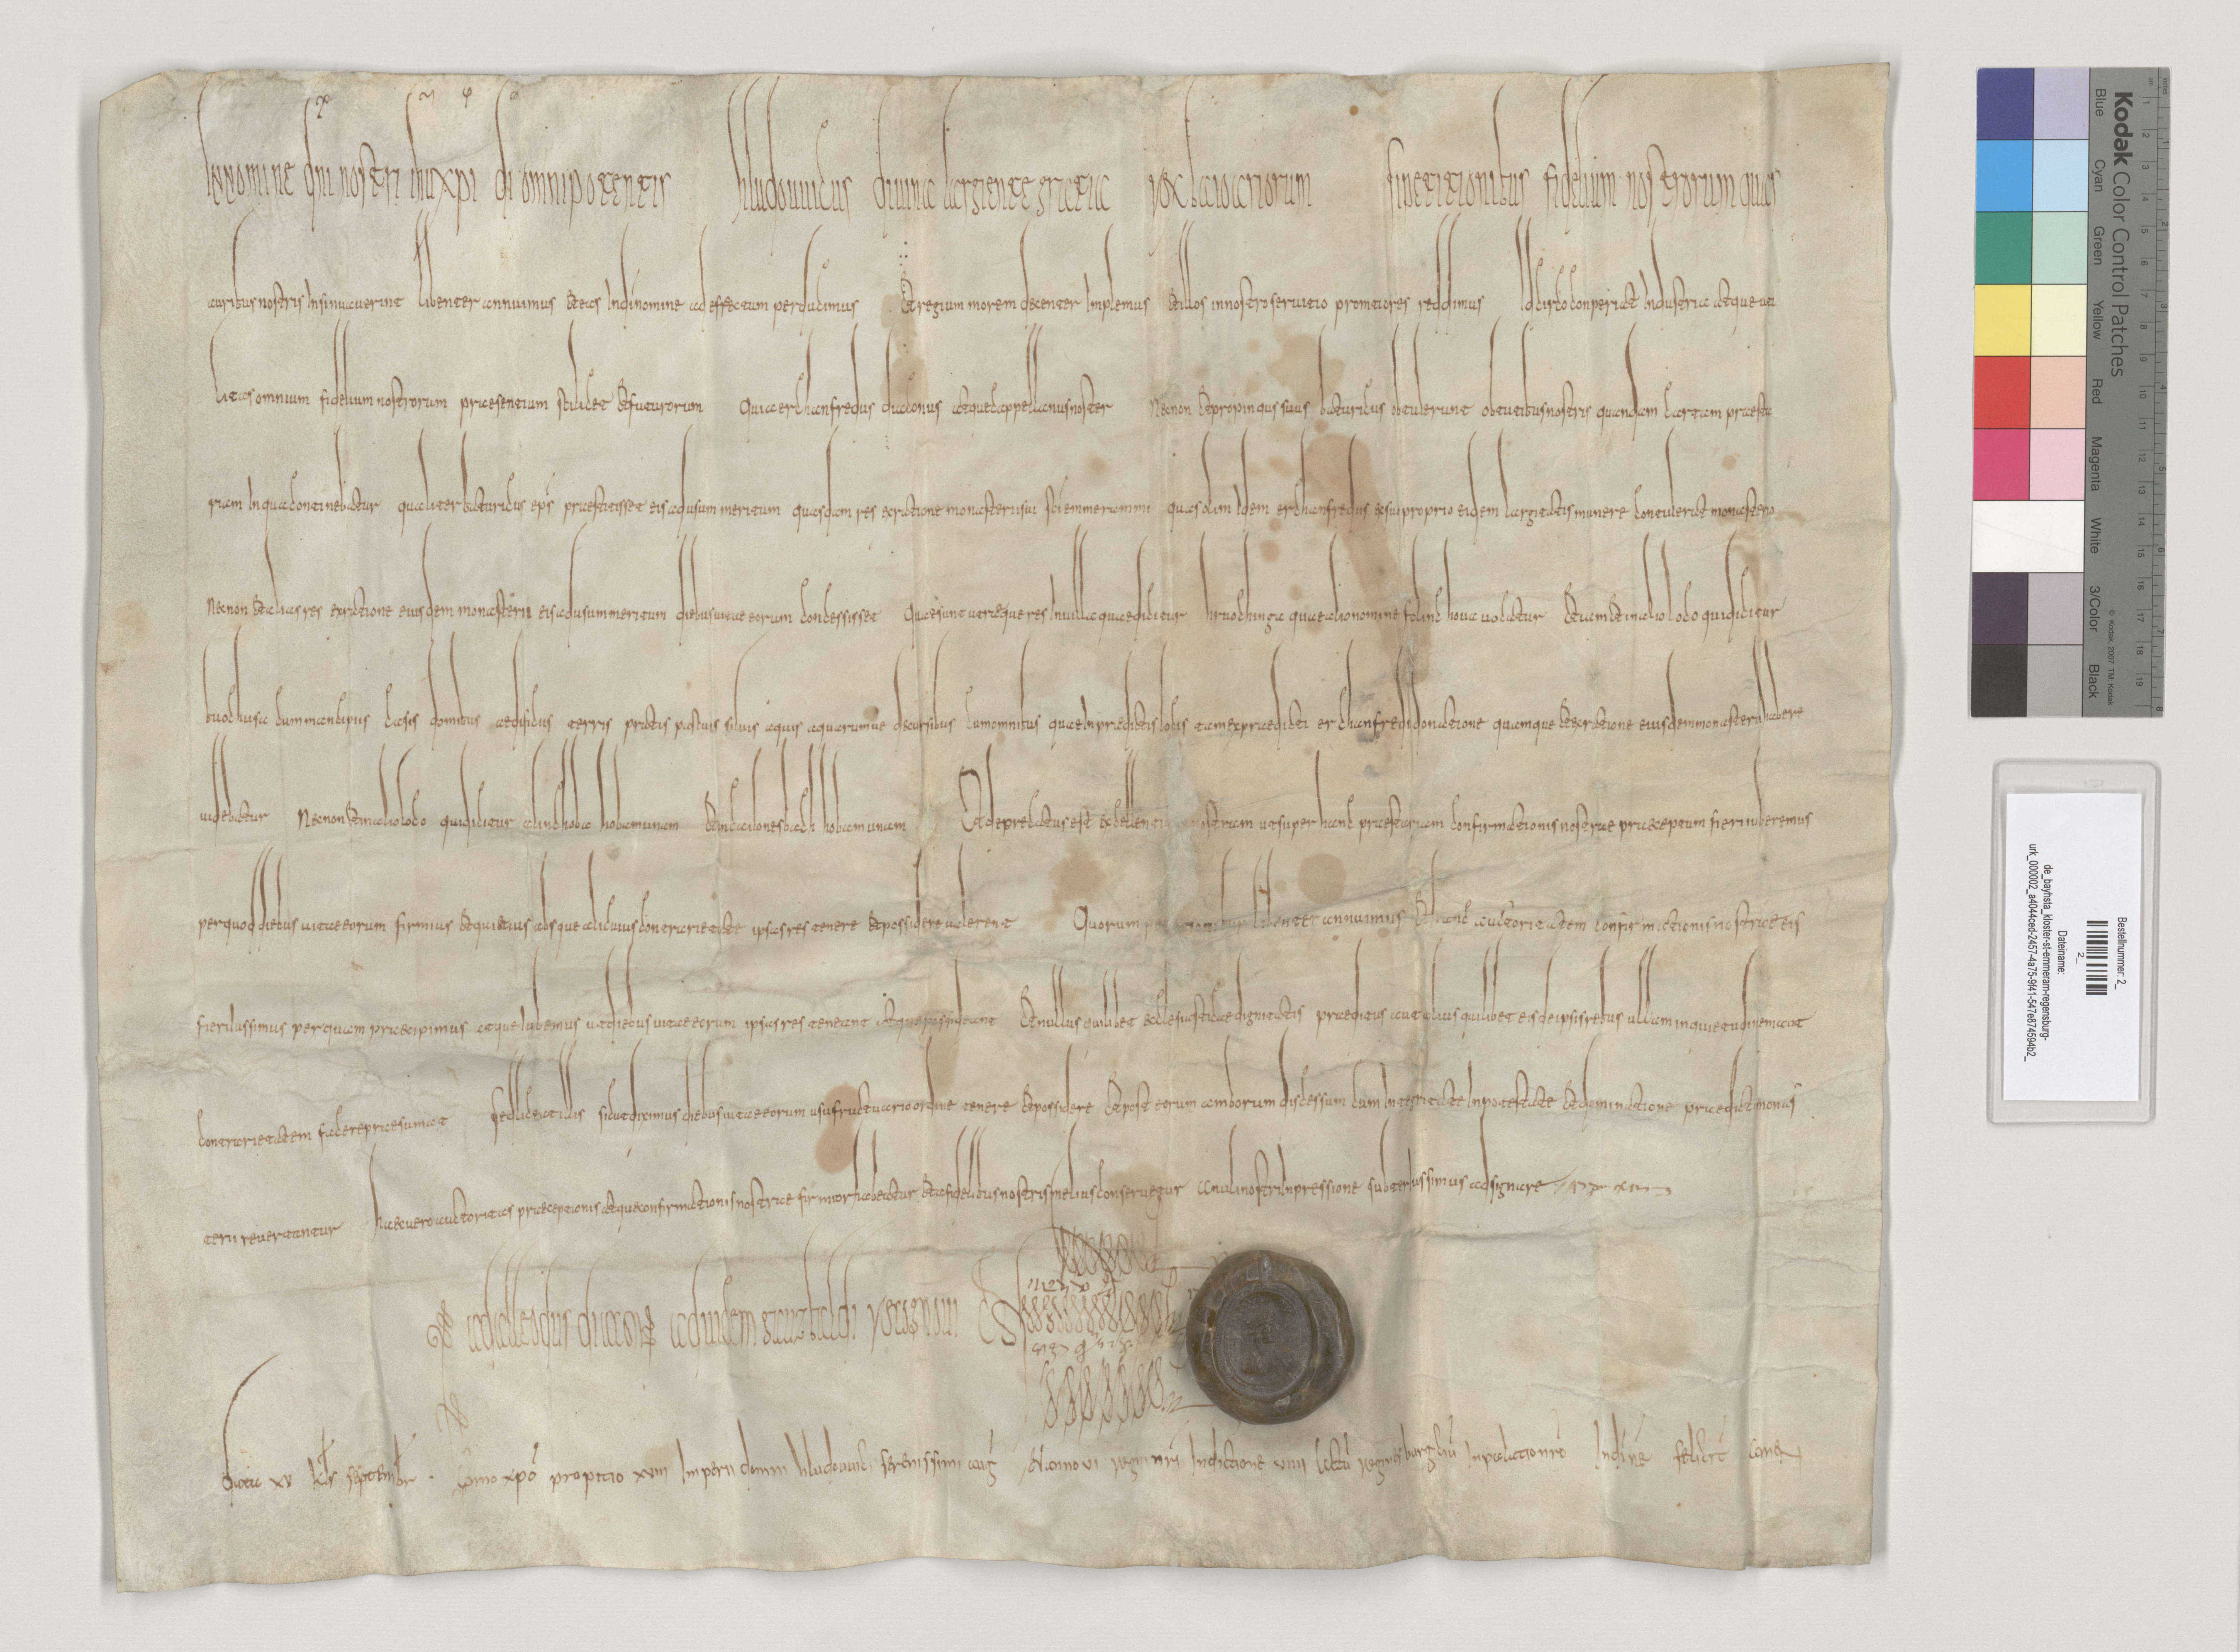 In nomine dni nostri ihu xpi di omnipotentis hludouuicus diuina largiente gratia rex baioariorum si petitionibus fidelium nostrorum quas
auribus nostris insinuauerint libenter annuimus et eas in di nomine ad effectum perducimus et regium morem decenter implemus et illos in nostro seruitio promtiores reddimus Idcirco conperiat industria atque uti
litas omnium fidelium nostrorum praesentium scilicet et futurorum quia erchanfredus diaconus atque cappellanus noster necnon et propinqus suus baturicus obtulerunt obtutibus nostris quandam cartam praesta
riam in qua continebatur qualiter baturicus eps praestitisset eis ad usum meritum quasdam res ex ratione monasterii sui sci emmerammi quas olim idem erchanfredus ex sui proprio eidem largitatis munere contulerat monasterio
necnon et alias res ex ratione eiusdem monasterii eis ad usum meritum diebus uitae eorum concessisset Quae sunt utreque res in uilla quae dicitur hruodhinga quae alio nomine feling houa uocatur etiam et in alio loco qui dicitur
buochusa cum mancipiis casis domibus aedificiis terris pratis pascuis siluis aquis aquarumue decursibus cum omnibus quae in praedictis locis tam ex praedicti erchanfredi donatione quamque et ex ratione eiusdem monasterii habere
uidebatur Necnon et in alio loco qui dicitur hobam unam et in hobam unam Et deprecatus est excellentiam nostram ut super hanc praestariam confirmationis nostrae praeceptum fieri iuberemus
per quod diebus uitae eorum firmius et quietius absque alicuius contrarietate ipsas res tenere et possidere ualerent Quorum libenter annuimus et hanc auctoritatem confirmationis nostrae eis
fieri iussimus per quam praecipimus atque iubemus ut diebus uitae eorum ipsas res teneant atque possideant Et nullus quilibet ecclesiasticae dignitatis praeditus aut alius quilibet eis de ipsis rebus ullam inquietudinem aut
contrarietatem facere praesumat sed liceat illis sicut diximus diebus uitae eorum usufructuario ordine tenere et possidere et post eorum amborum discessum cum integritate in potestate et dominatione praedicti monas
terii reuertantur haec uero auctoritas praeceptionis atque confirmationis nostrae firmior habeatur et a fidelibus nostris melius conseruetur anuli nostri inpressione subter iussimus adsignare
adalleodus diaconus aduicem gauzbaldi recognoui
data xv kls septembr Anno xpo propitio xviii imperii domni hludouuici serenissimi aug et anno vi regni nri indictione viiii Actu reganesburg ciu in palatio nro in di ne felicit amen
Kodak Color Control Patches
© Kodak 2007 TM: Kodak
Blue Cyan Green Yellow Red Magenta White 3/Color Black
Bestellnummer: 2_
2_
Dateiname:
de_bayhsta_kloster-st-emmeram-regensburg-
urk_000002_a4044ced-2457-4a75-9f41-547e874594b2_